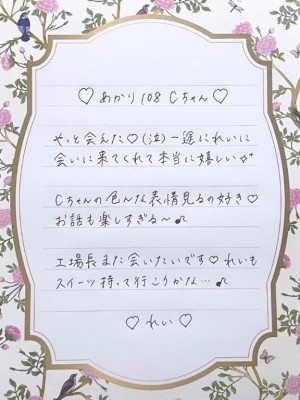 ♡ あかり108 Cちゃん ♡
やっと会えた♡(泣)一途にれいに
会いに来てくれて本当に嬉しい✧
Cちゃんの色んな表情見るの好き♡
お話も楽しすぎる〜♪
工場長また会いたいです♡れいも
スイーツ持って行こうかな…♪
♡ れい ♡